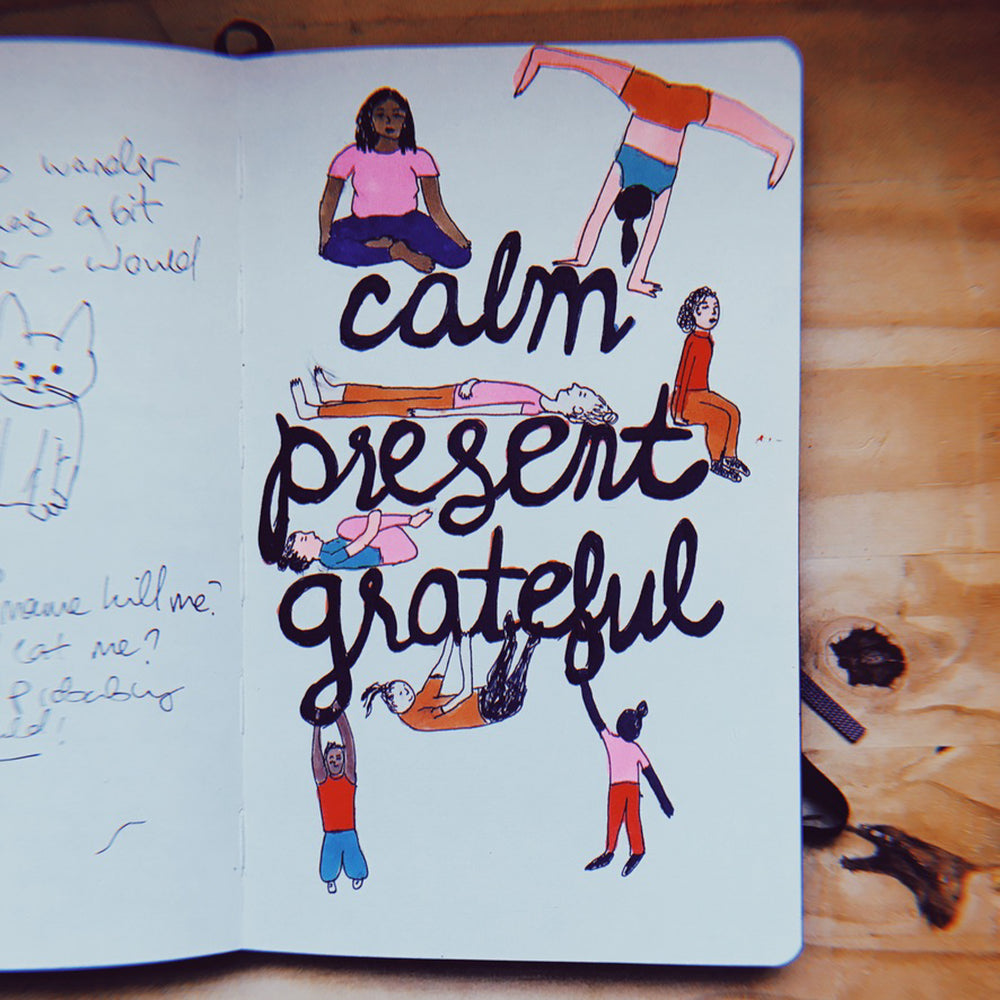 wander
as a bit
would
kill me?
eat me?
probably
calm
present
grateful